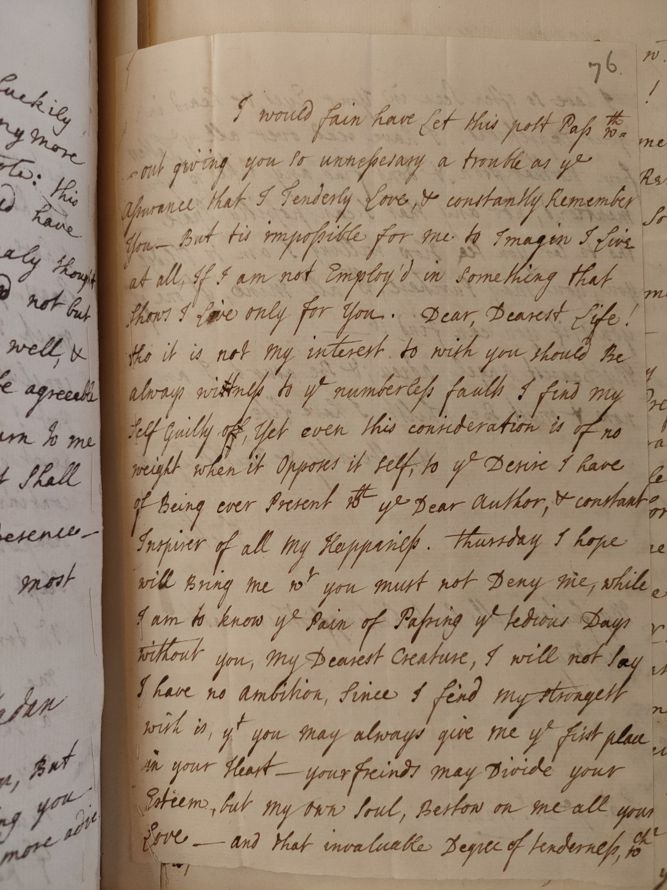 Luckily
any more
this
have
thought
not but
well, &
be agreeable
to me
Shall
most
But
ing you
more
76.
I would fain have Let this post Pass wth=
-out giving you so unnessesary a trouble as ye
Assurance that I Tenderly Love, & constantly Remember
You — But tis impossible for me to Imagin I Live
at all, If I am not Employ'd in something that
Shows I Live only for You. Dear, Dearest Life!
tho it is not my interest to wish you should Be
always wittness to ye numberless faults I find my
Self Guilty of, Yet even this consideration is of no
weight when it Opposes it Self, to ye Desire I have
of Being ever Present wth ye Dear Author, & constant
Inspirer of all my Happaness. Thursday I hope
will Bring me wt you must not Deny me, while
I am to know ye Pain of Passing ye tedious Days
without you, My Dearest Creature, I will not Say
I have no ambition, Since I find my strongest
wish is, yt you may always give me ye first place
in your Heart — your freinds may Divide your
Esteem, but my own Soul, Bestow on me all your
Love — and that invaluable Degree of tenderness, wch